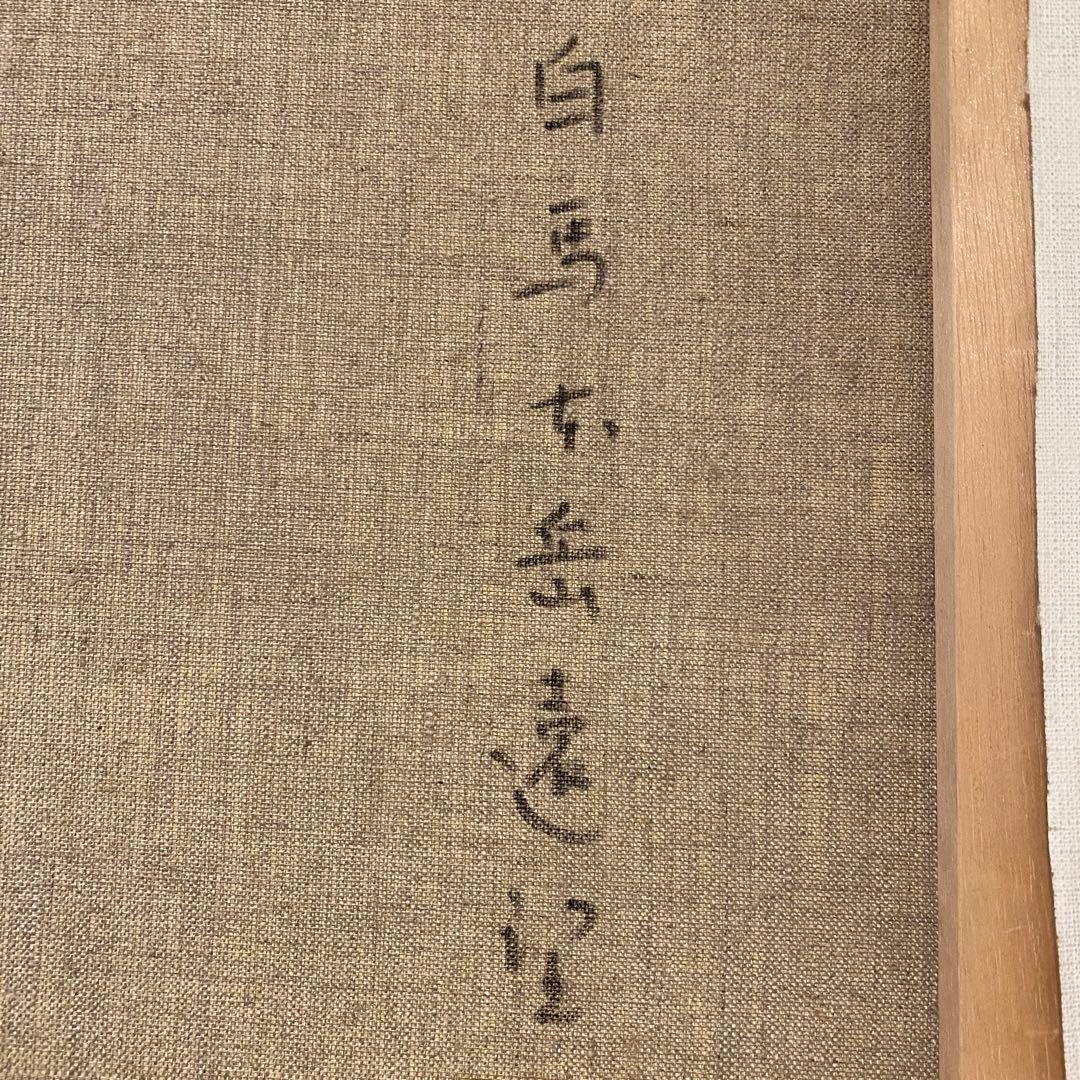 白馬岳遠望